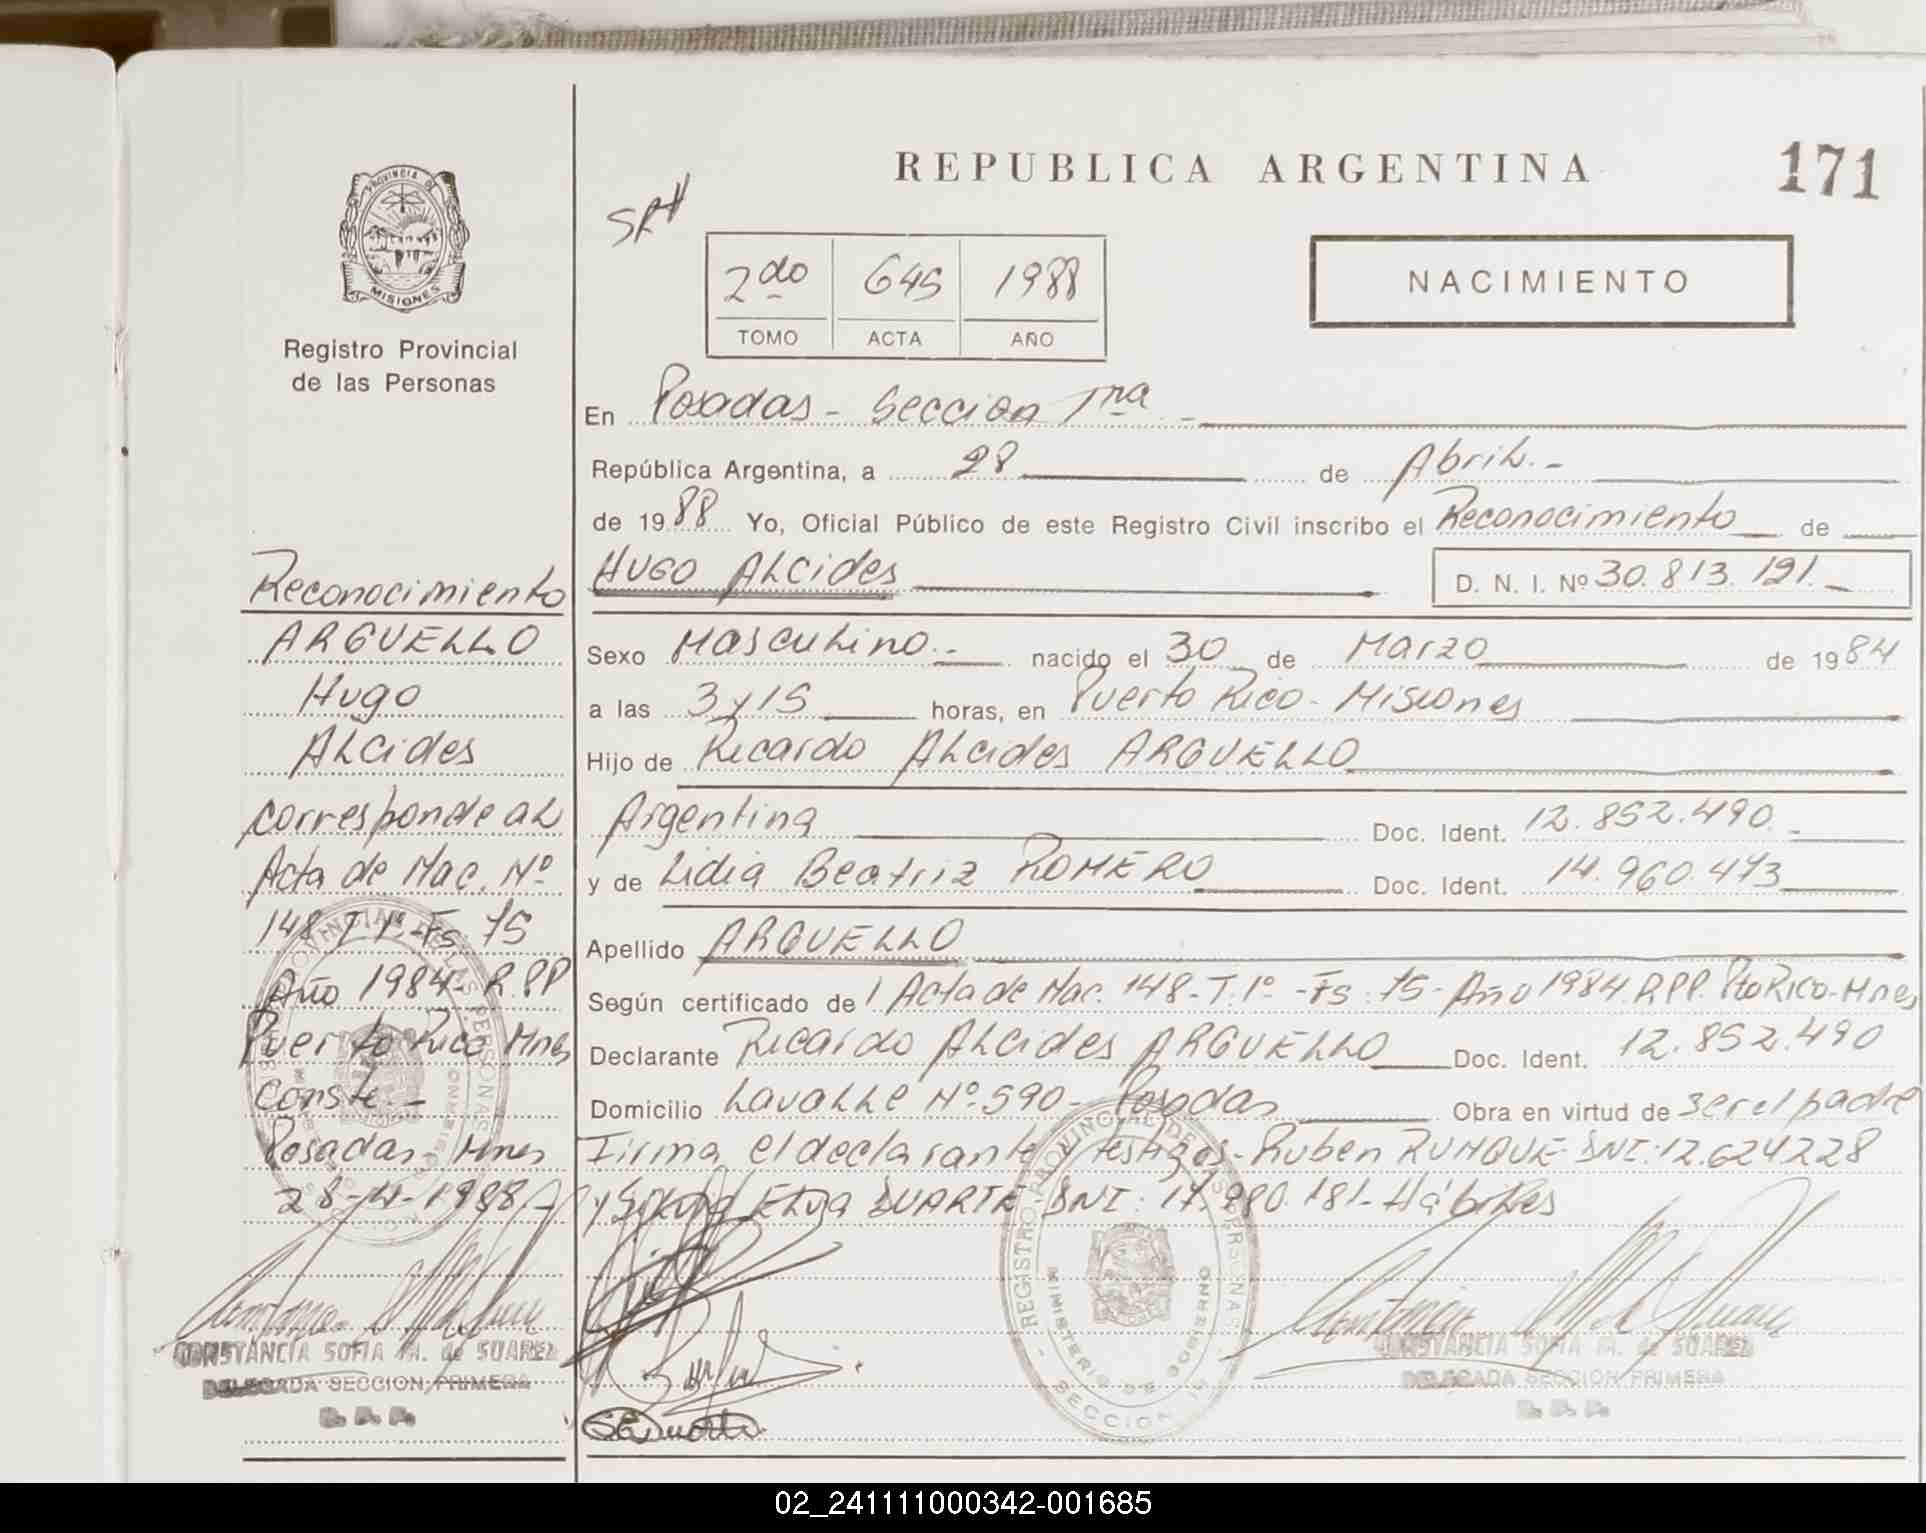 REPUBLICA ARGENTINA
171
PROVINCIA DE
MISIONES
Registro Provincial
de las Personas
2do 645 1988
TOMO ACTA AÑO
NACIMIENTO
En Posadas - Seccion 1ra -
República Argentina, a 28 de Abril.-
de 1988 Yo, Oficial Público de este Registro Civil inscribo el Reconocimiento de
Hugo Alcides
D. N. I. Nº 30.813.191.-
Sexo Masculino.- nacido el 30 de Marzo de 1984
a las 3 y 15 horas, en Puerto Rico - Misiones
Hijo de Ricardo Alcides ARGUELLO
Argentina Doc. Ident. 12.852.490.-
y de Lidia Beatriz ROMERO Doc. Ident. 14.960.473
Apellido ARGUELLO
Según certificado de Acta de Nac. 148 - T. 1º - Fs: 75 - Año 1984 R.P.P. Pto Rico - Mnes
Declarante Ricardo Alcides ARGUELLO Doc. Ident. 12.852.490
Domicilio Lavalle Nº 590 - Posadas Obra en virtud de ser el padre
Firma el declarante y testigos - Ruben RUNQUE DNI: 12.624228
y Elva DUARTE DNI: 17.980.181 - Hábiles
Reconocimiento
ARGUELLO
Hugo
Alcides
corresponde al
Acta de Nac. Nº
148 T 1º - Fs 75
Año 1984 - R.PP
Puerto Rico Mnes
Conste.-
Posadas - Mnes
28-4-1988
CONSTANCIA SOFIA M. de SUAREZ
DELEGADA SECCION PRIMERA
R. P. P.
REGISTRO PROVINCIAL DE LAS PERSONAS
MINISTERIO DE GOBIERNO
SECCION
CONSTANCIA SOFIA M. de SUAREZ
DELEGADA SECCION PRIMERA
R. P. P.
02_241111000342-001685